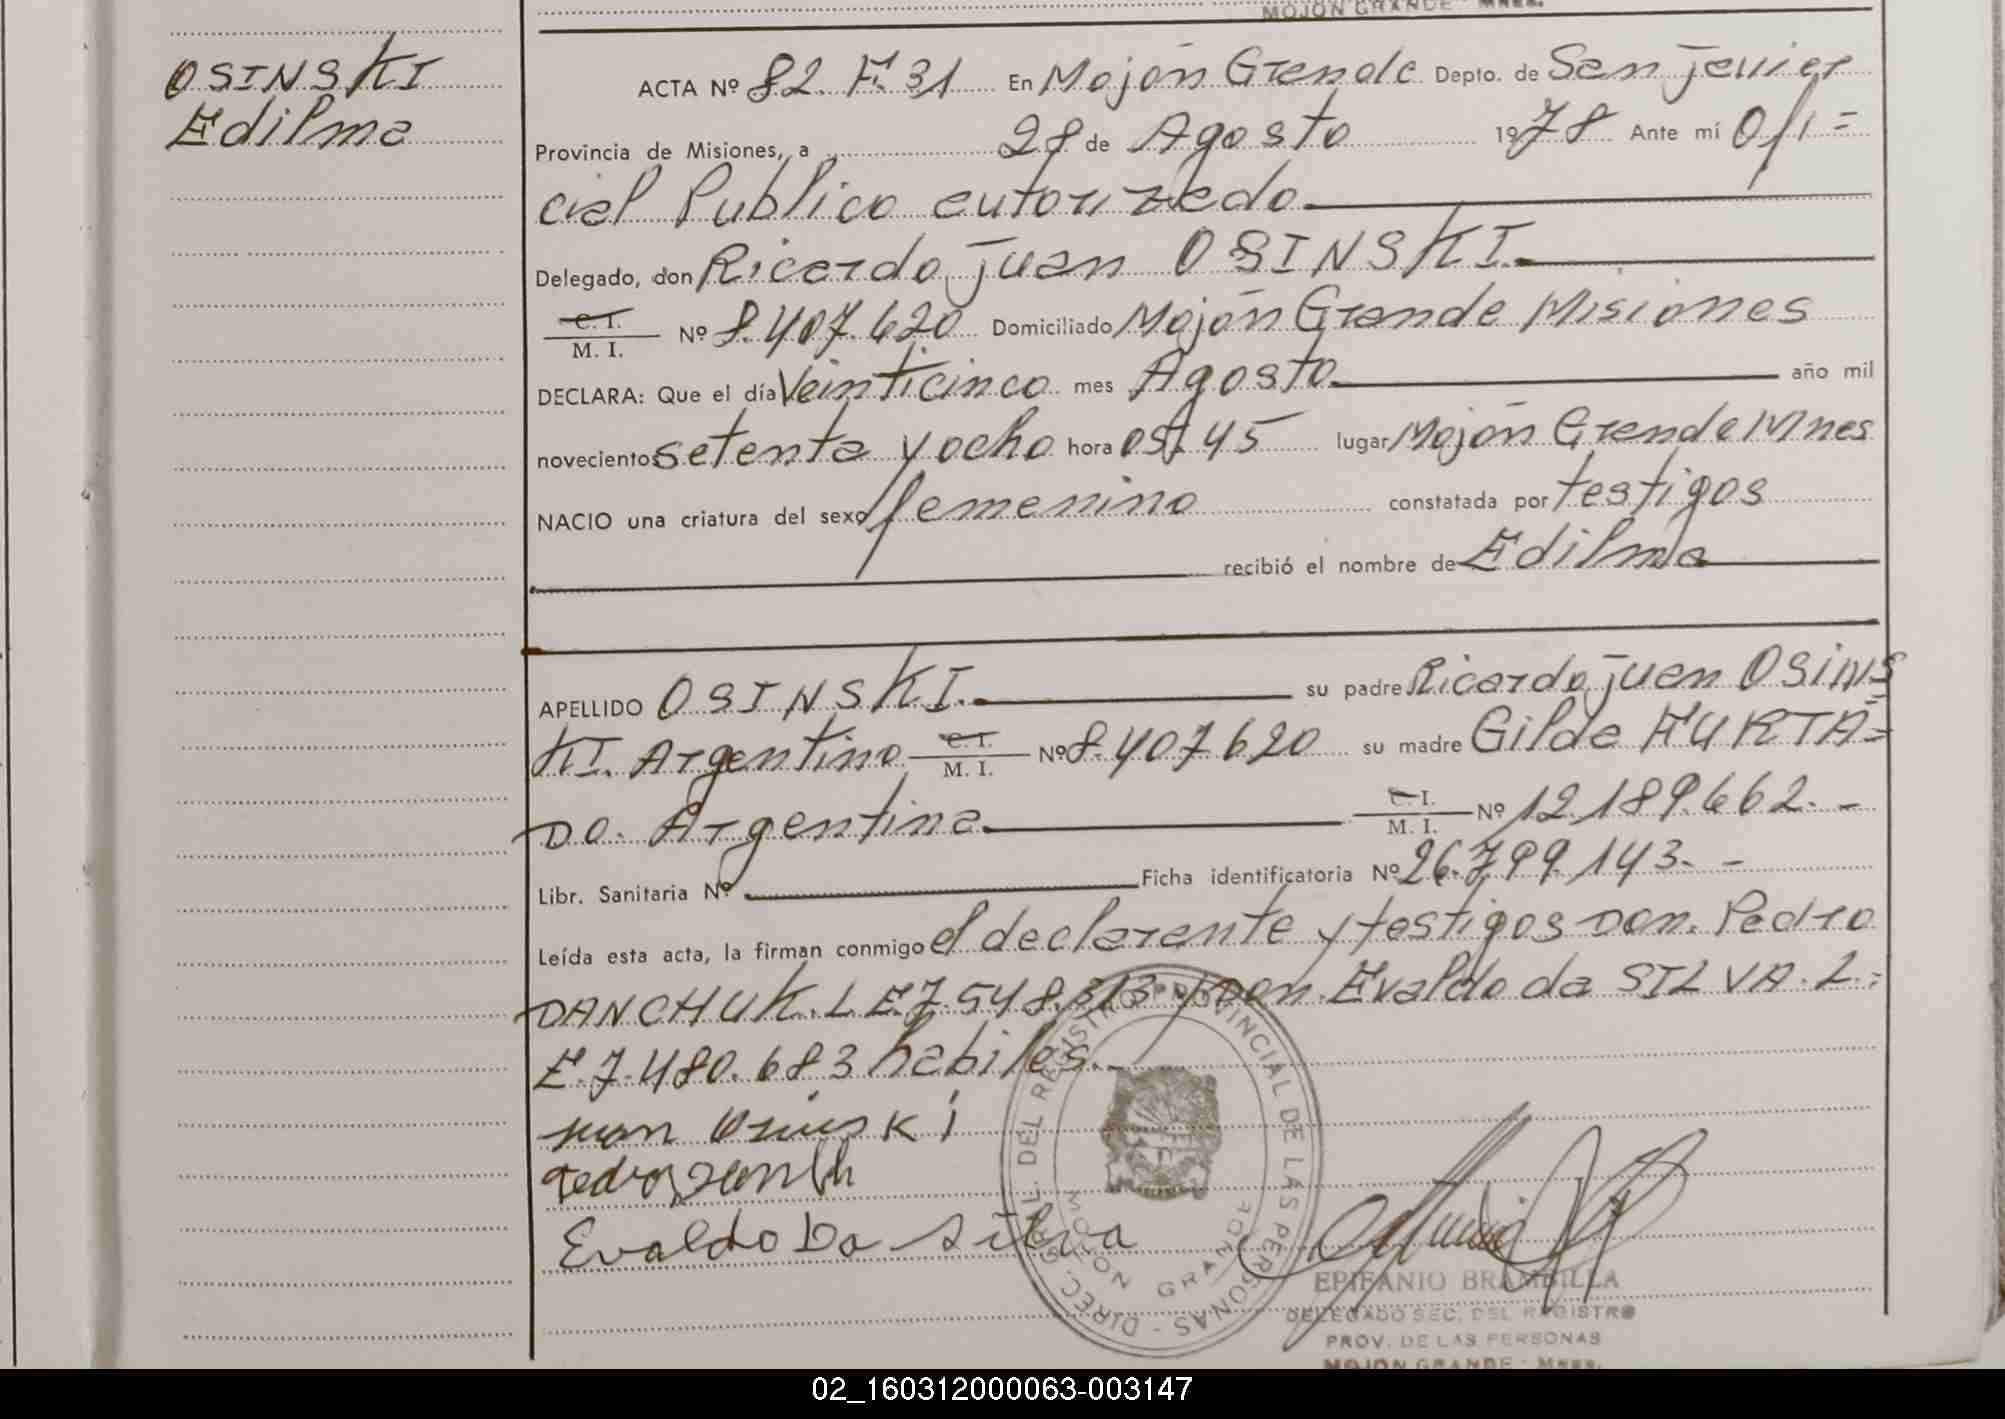 MOJON GRANDE - Mnes.
OSINSKI
Edilma
ACTA Nº 82. F. 31 En Mojón Grande Depto. de San javier
Provincia de Misiones, a 28 de Agosto 1978 Ante mí Ofi=
cial Publico autorizado
Delegado, don Ricardo juan OSINSKI.
C. I.
M. I. Nº 8.407.620 Domiciliado Mojón Grande Misiones
DECLARA: Que el día Veinticinco mes Agosto año mil
novecientos setenta y ocho hora 05,45 lugar Mojón Grande Mnes
NACIO una criatura del sexo femenino constatada por testigos
recibió el nombre de Edilma
APELLIDO OSINSKI. su padre Ricardo juan OSINS=
KI. Argentino C. I. M. I. Nº 8.407.620 su madre Gilda FURTA=
DO. Argentina. C. I. M. I. Nº 12.189.662. -
Libr. Sanitaria Nº Ficha identificatoria Nº 26.799.143. -
Leída esta acta, la firman conmigo el declarante y testigos Don. Pedro
DANCHUK. L E. 7.548.313 y Don. Evaldo da SILVA. L.=
E. 7.480.683 habiles. -
juan Osinski
Pedro
Evaldo Da Silva
DIREC. GRAL. DEL REGISTRO PROVINCIAL DE LAS PERSONAS -
MOJON GRANDE
EPIFANIO BRAMBILLA
DELEGADO SEC. DEL REGISTRO
PROV. DE LAS PERSONAS
MOJON GRANDE - Mnes.
02_160312000063-003147